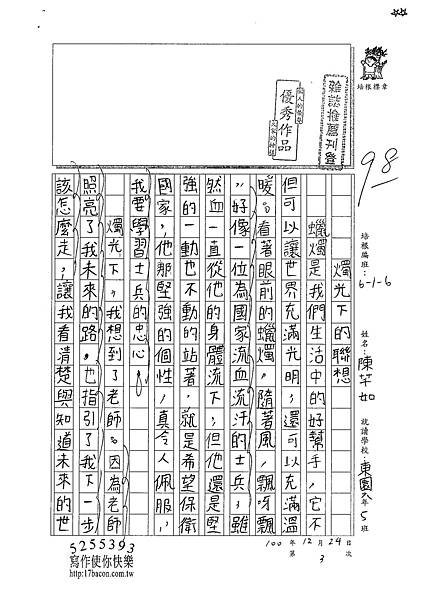 培根標章
雜誌推薦刊登
個人的榮登
優秀作品
大家的榜樣
98
培根編班:6-1-6
姓名:陳芊如
就讀學校:東園六年5班
100年12月24日
第3次
燭光下的聯想
蠟燭是我們生活中的好幫手,它不
但可以讓世界充滿光明,還可以充滿溫
暖。看著眼前的蠟燭,隨著風,飄呀飄
,好像一位為國家流血流汗的士兵,雖
然血一直從他的身體流下,但他還是堅
強的一動也不動的站著,就是希望保衛
國家,他那堅強的個性,真令人佩服,
我要學習士兵的忠心。
燭光下,我想到了老師。因為老師
照亮了我未來的路,也指引了我下一步
該怎麼走,讓我看清楚與知道未來的世
5255393
寫作使你快樂
http://17bacon.com.tw